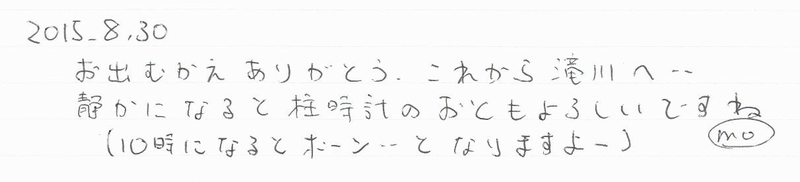 2015.8.30
お出むかえありがとう. これから滝川へ‥
静かになると柱時計のおともよろしいですね
(10時になるとボーン‥となりますよー)
mo